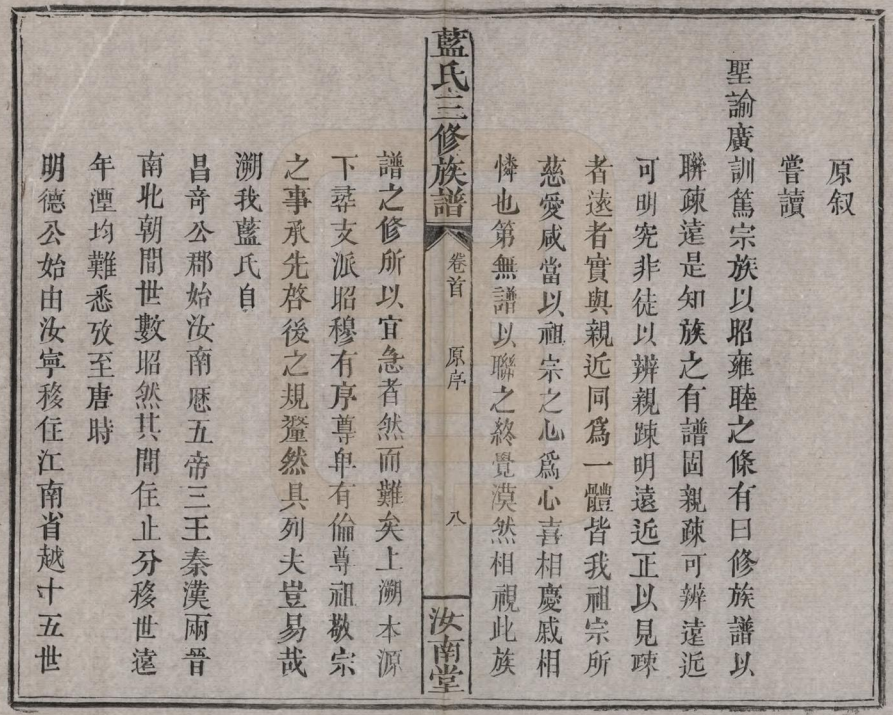 原叙
嘗讀
聖諭廣訓篤宗族以昭雍睦之條有曰修族譜以
聯疎遠是知族之有譜固親疎可辨遠近
可明究非徒以辨親踈明遠近正以見踈
者遠者實與親近同爲一體皆我祖宗所
慈愛咸當以祖宗之心爲心喜相慶戚相
憐也第無譜以聯之終覺漠然相視此族
藍氏三修族譜
卷首
原序
八
汝南堂
譜之修所以宜急者然而難矣上溯本源
下尋支派昭穆有序尊卑有倫尊祖敬宗
之事承先啓後之規釐然具列夫豈易哉
溯我藍氏自
昌奇公郡始汝南歷五帝三王秦漢兩晉
南北朝間世數昭然其間住止分移世遠
年湮均難悉攷至唐時
明德公始由汝寧移住江南省越十五世